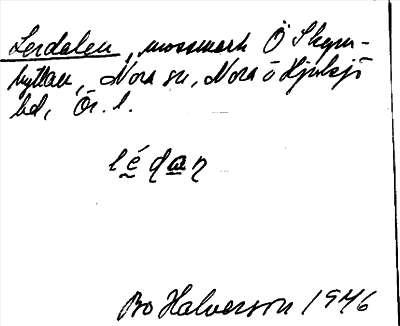 Lerdalen, mossmark Ö Skym-
hyttan, Nora sn, Nora o Hjulsjö
hd, Ör. l.
lédan
Bo Halverson 1946